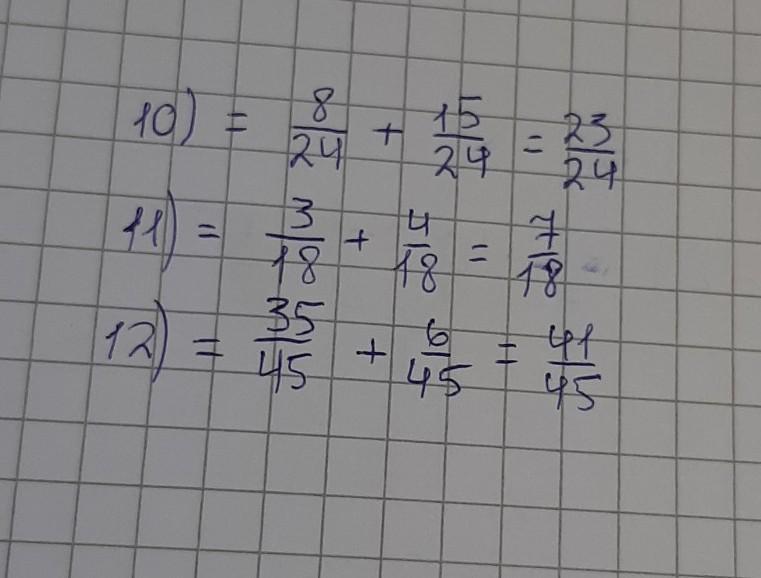 10) = 8/24 + 15/24 = 23/24
11) = 3/18 + 4/18 = 7/18
12) = 35/45 + 6/45 = 41/45